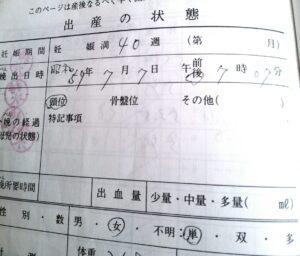 このページは産後なるべく早く
出産の状態
妊娠期間 妊娠満40週(第 月)
娩出日時 昭和59年7月7日 午前後7時07分
頭位 骨盤位 その他(
特記事項
娩の経過
母児の状態)
所要時間 出血量 少量・中量・多量( ml)
性別・数 男・女・不明:単・双・多
体重